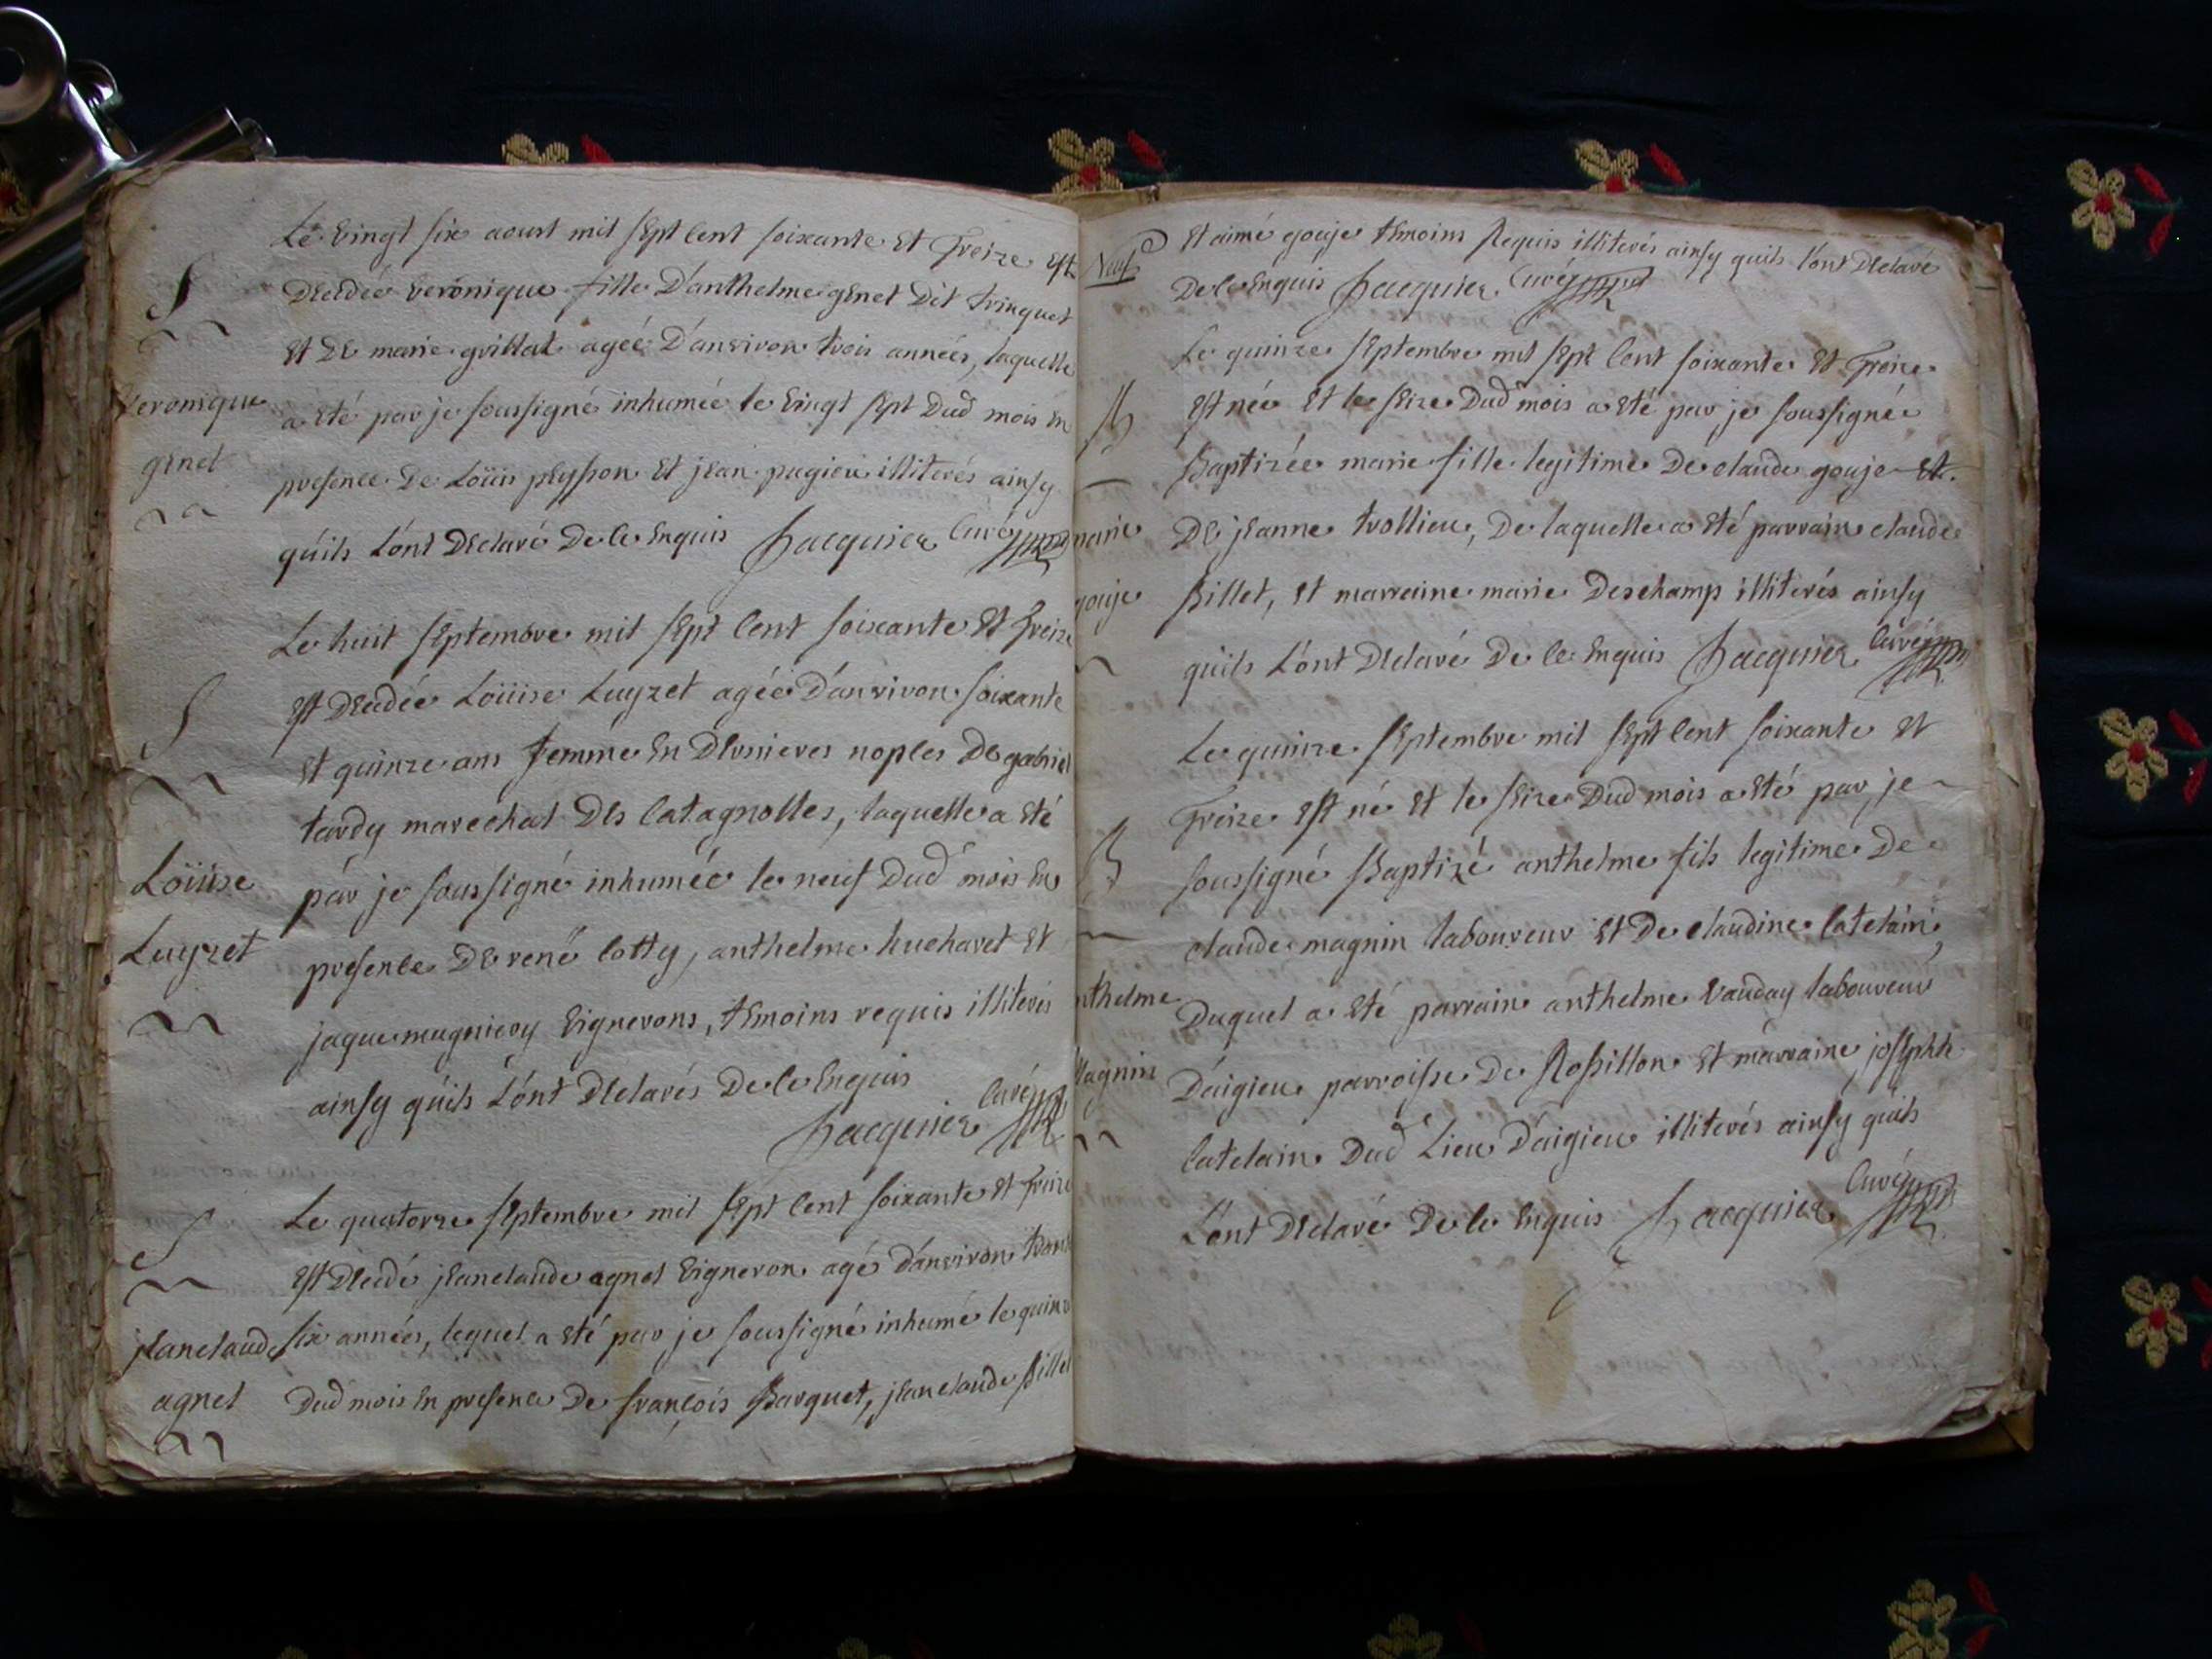 Le vingt six aoust mil sept cent soixante et treize est
decedée veronique fille d'anthelme genet dit trinquet
et de marie grillat agée d'anviron trois années, laquelle
a eté par je soussigné inhumée le vingt sept dud mois en
presence de Loüis peysson et jean pugieu illiterés ainsy
qu'ils L'ónt declaré de ce enquis Jacquier Curé
S
veronique
genet
Le huit septembre mil sept cent soixante et treize
est decedée Loüise Luyzet agée d'anviron soixante
et quinze ans femme en dernieres noples de gabriel
tardy marechal des catagnolles, laquelle a eté
pár je soussigné inhumée le neuf dud mois en
presence de rené cotty, anthelme huchavet et
jaque mugniery vignerons, temoins requis illiterés
ainsy qúils L'ónt declarés de ce enquis
Jacquier Curé
S
Loüise
Luyzet
Le quatorze septembre mil sept cent soixante et treize
est decedé jeanclaude agnel vigneron agé d'anviron trente
six années, lequel a eté par je soussigné inhumé le quinze
dud mois en presence de françois Barquet, jeanclaude Billet
S
jeanclaude
agnel
Neuf
et aimé gouje temoins Requis illiterés ainsy quils l'ónt declaré
de ce enquis Jacquier Curé
Le quinze septembre mil sept cent soixante et treize
est née et le seize dud mois a eté par je soussignée
Baptizée marie fille legitime de claude gouje et
de jeanne trollieu, de laquelle a eté parrain claude
Billet, et marraine marie deschamp illiterés ainsy
qúils L'ónt declaré de ce enquis Jacquier Curé
B
marie
gouje
Le quinze septembre mil sept cent soixante et
treize est né et le seize dud mois a eté par je
soussigné Baptizé anthelme fils legitime de
claude magnin laboureur et de claudine catelain,
duquel a eté parrain anthelme vauday laboureur
d'aigieu parroisse de Rossillon et marraine josephte
catelain dud Lieu d'aigieu illiterés ainsy qúils
L'ónt declaré de ce enquis Jacquier Curé
B
nthelme
Magnin